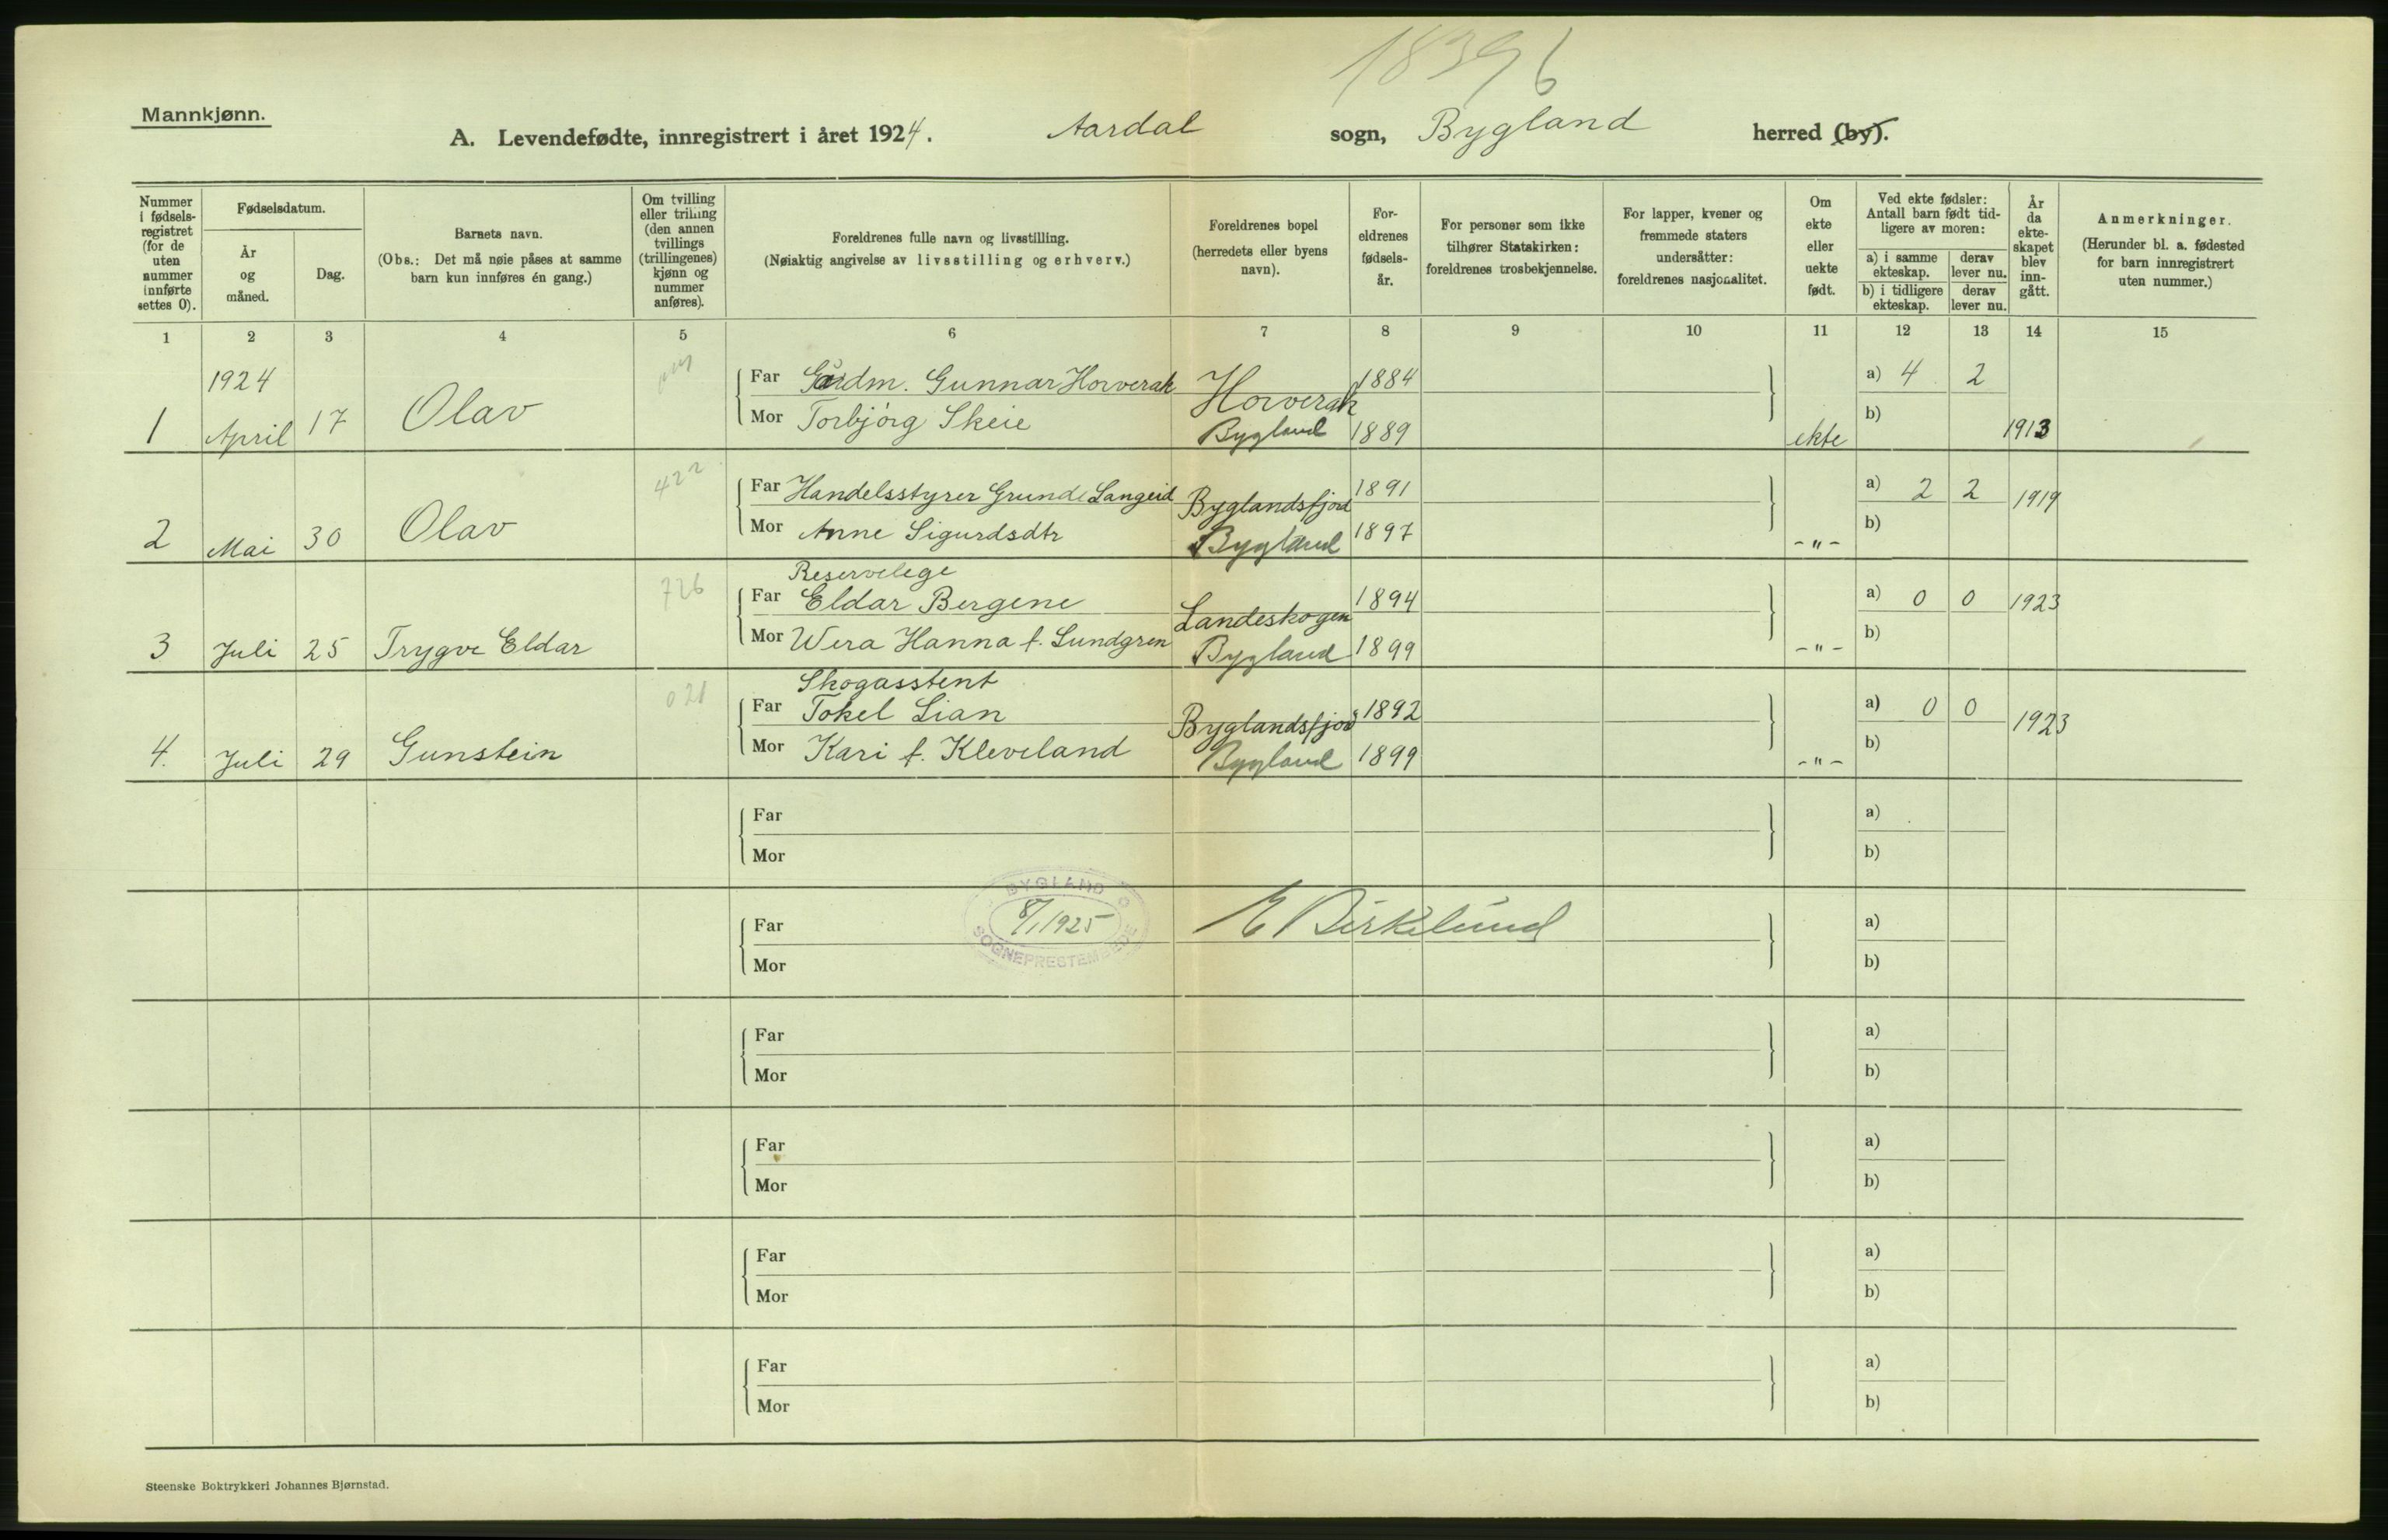 18396
Mannkjønn.
A. Levendefødte, innregistrert i året 1924. Aardal sogn, Bygland herred (by).
Nummer i fødsels-registret (for de uten nummer innførte settes 0).
Fødselsdatum.
År og måned.
Dag.
Barnets navn.
(Obs.: Det må nøie påses at samme barn kun innføres én gang.)
Om tvilling eller trilling (den annen tvillings (trillingenes) kjønn og nummer anføres).
Foreldrenes fulle navn og livsstilling.
(Nøiaktig angivelse av livsstilling og erhverv.)
Foreldrenes bopel (herredets eller byens navn).
For-eldrenes fødsels-år.
For personer som ikke tilhører Statskirken: foreldrenes trosbekjennelse.
For lapper, kvener og fremmede staters undersåtter: foreldrenes nasjonalitet.
Om ekte eller uekte født.
Ved ekte fødsler: Antall barn født tid-ligere av moren:
a) i samme ekteskap. derav lever nu.
b) i tidligere ekteskap. derav lever nu.
År da ekte-skapet blev inn-gått.
Anmerkninger.
(Herunder bl. a. fødested for barn innregistrert uten nummer.)
1 2 3 4 5 6 7 8 9 10 11 12 13 14 15
1924
Far Gårdm. Gunnar Horverak Horverak 1884 a) 4 2
1 April 17 Olav Mor Torbjörg Skeie Bygland 1889 ekte b) 1913
422
Far Handelsstyrer Grunde Langeid Byglandsfjord 1891 a) 2 2 1919
2 Mai 30 Olav Mor Anne Sigurdsdtr Bygland 1897 -"- b)
726
Reservelege
Far Eldar Bergene Landeskogen 1894 a) 0 0 1923
3 Juli 25 Trygve Eldar Mor Wera Hanna f. Lundgren Bygland 1899 -"- b)
021
Skogasstent
Far Tokel Lian Byglandsfjord 1892 a) 0 0 1923
4. Juli 29 Gunstein Mor Kari f. Kleveland Bygland 1899 -"- b)
Far a)
Mor b)
BYGLAND
Far 8/1 1925 E Birkelund a)
SOGNEPRESTEMBEDE
Mor b)
Far a)
Mor b)
Far a)
Mor b)
Far a)
Mor b)
Far a)
Mor b)
Steenske Boktrykkeri Johannes Bjørnstad.